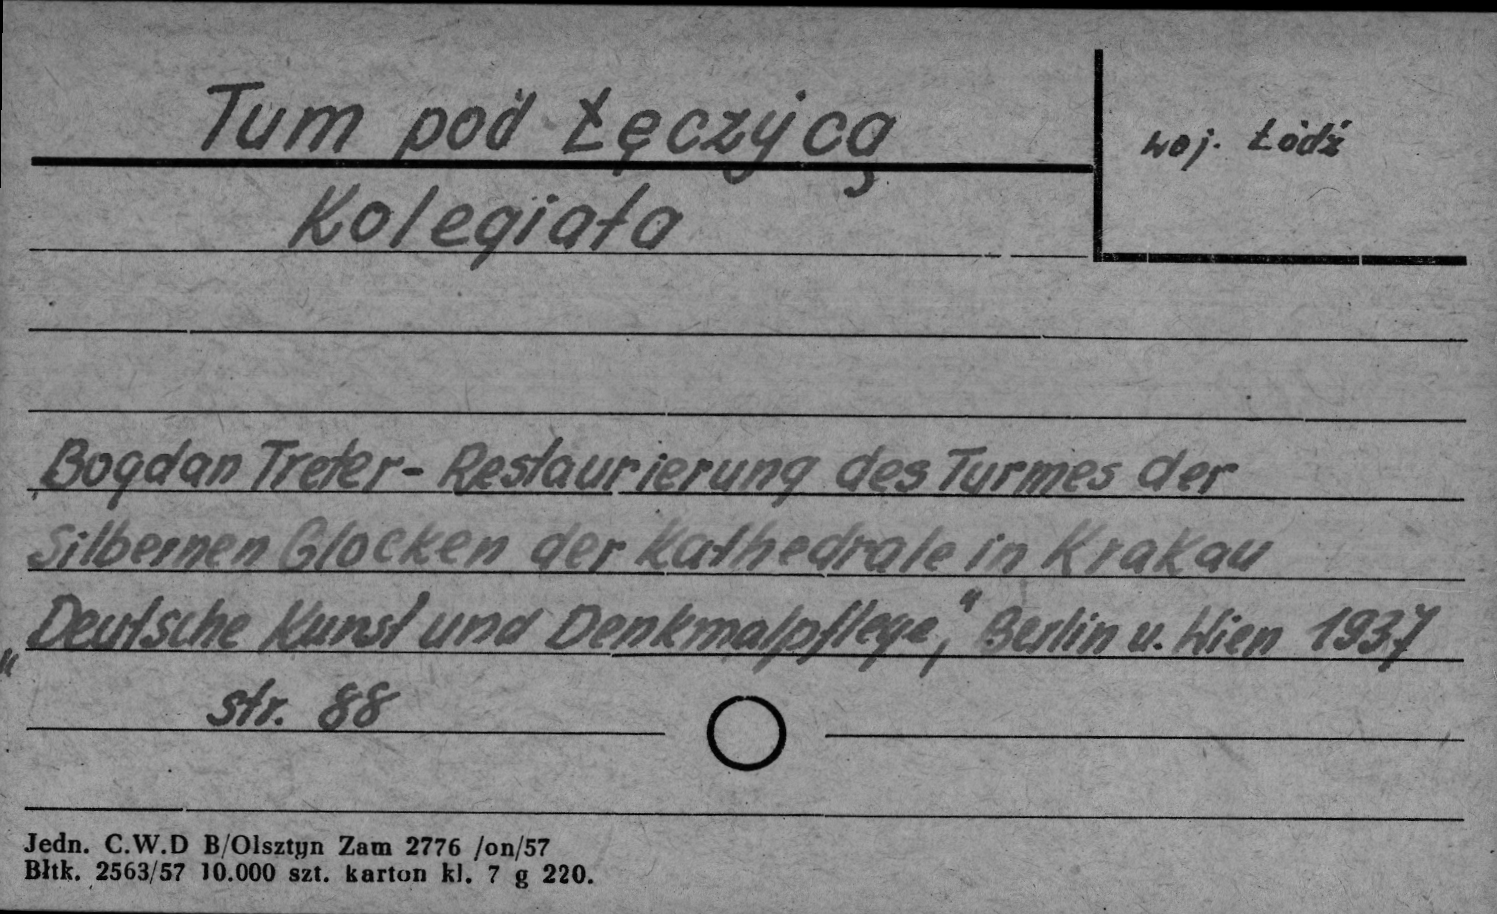 Tum pod Łęczycą
woj. Łódź
Kolegiata
Bogdan Treter - Restaurierung des Turmes der
Silbernen Glocken der Kathedrale in Krakau
„Deutsche Kunst und Denkmalpflege," Berlin u. Wien 1937
str. 88
Jedn. C.W.D B/Olsztyn Zam 2776 /on/57
Błtk. 2563/57 10.000 szt. karton kl. 7 g 220.